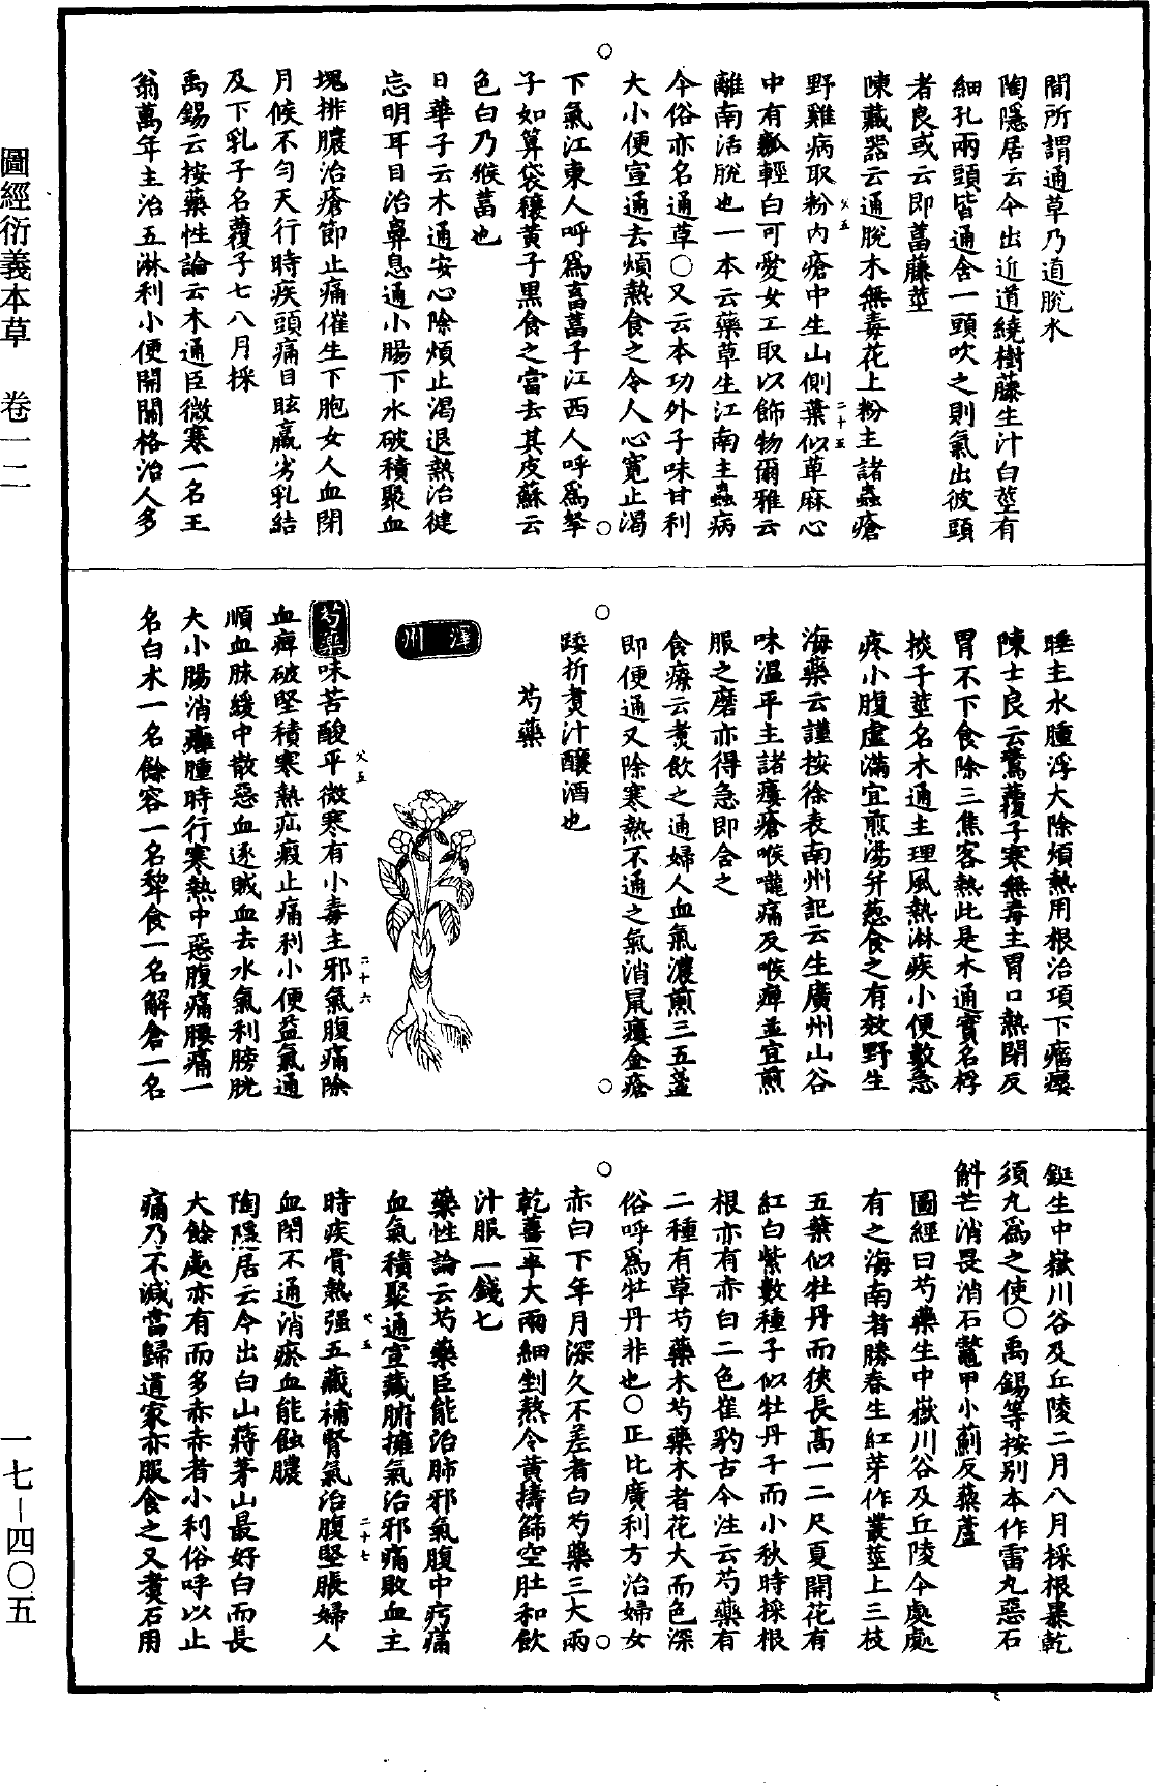 間所謂通草乃道脫木
陶隱居云今出近道繞樹藤生汁白莖有
細孔兩頭皆通含一頭吹之則氣出彼頭
者良或云即葍藤莖
陳藏器云通脫木無毒花上粉主諸蟲瘡
野雞病取粉內瘡中生山側葉似草麻心
中有瓤輕白可愛女工取以飾物爾雅云
離南活脫也一本云藥草生江南主蟲病
今俗亦名通草○又云本功外子味甘利
大小便宣通去煩熱食之令人心寬止渴
下氣江東人呼為畜葍子江西人呼為拏
子如算袋穰黃子黑食之當去其皮蘇云
色白乃猴葍也
日華子云木通安心除煩止渴退熱治健
忘明耳目治鼻息通小腸下水破積聚血
塊排膿治瘡節止痛催生下胞女人血閉
月候不勻天行時疾頭痛目眩羸劣乳結
及下乳子名覆子七八月採
禹錫云按藥性論云木通臣微寒一名王
翁萬年主治五淋利小便開關格治人多
睡主水腫浮大除煩熱用根治項下瘤癭
陳士良云鷰覆子寒無毒主胃口熱閉反
胃不下食除三焦客熱此是木通實名桴
棪子莖名木通主理風熱淋疾小便數急
疼小腹虛滿宜煎湯并葱食之有效野生
海藥云謹按徐表南州記云生廣州山谷
味溫平主諸瘻瘡喉嚨痛及喉痺並宜煎
服之磨亦得急即含之
食療云煮飲之通婦人血氣濃煎三五盞
即便通又除寒熱不通之氣消鼠瘻金瘡
踒折煮汁釀酒也
芍藥
澤州
芍藥味苦酸平微寒有小毒主邪氣腹痛除
血痺破堅積寒熱疝瘕止痛利小便益氣通
順血脉緩中散惡血逐賊血去水氣利膀胱
大小腸消癰腫時行寒熱中惡腹痛腰痛一
名白木一名餘容一名犂食一名解倉一名
鋋生中嶽川谷及丘陵二月八月採根暴乾
須丸為之使○禹錫等按別本作雷丸惡石
斛芒消畏消石鱉甲小薊反藜蘆
圖經曰芍藥生中嶽川谷及丘陵今處處
有之海南者勝春生紅芽作叢莖上三枝
五葉似牡丹而狹長高一二尺夏開花有
紅白紫數種子似牡丹子而小秋時採根
根亦有赤白二色崔豹古今注云芍藥有
二種有草芍藥木芍藥木者花大而色深
俗呼為牡丹非也○正比廣利方治婦女
赤白下年月深久不差者白芍藥三大兩
乾薑半大兩細剉熬令黃擣篩空肚和飲
汁服一錢七
藥性論云芍藥臣能治肺邪氣腹中㽱痛
血氣積聚通宣藏腑擁氣治邪痛敗血主
時疾骨熱强五藏補腎氣治腹堅脹婦人
血閉不通消瘀血能蝕膿
陶隱居云今出白山蔣茅山最好白而長
大餘處亦有而多赤赤者小利俗呼以止
痛乃不減當歸道家亦服食之又煮石用
圖經衍義本草　卷一二
一七-四〇五
父五
二十五
父五
二十六
父五
二十七